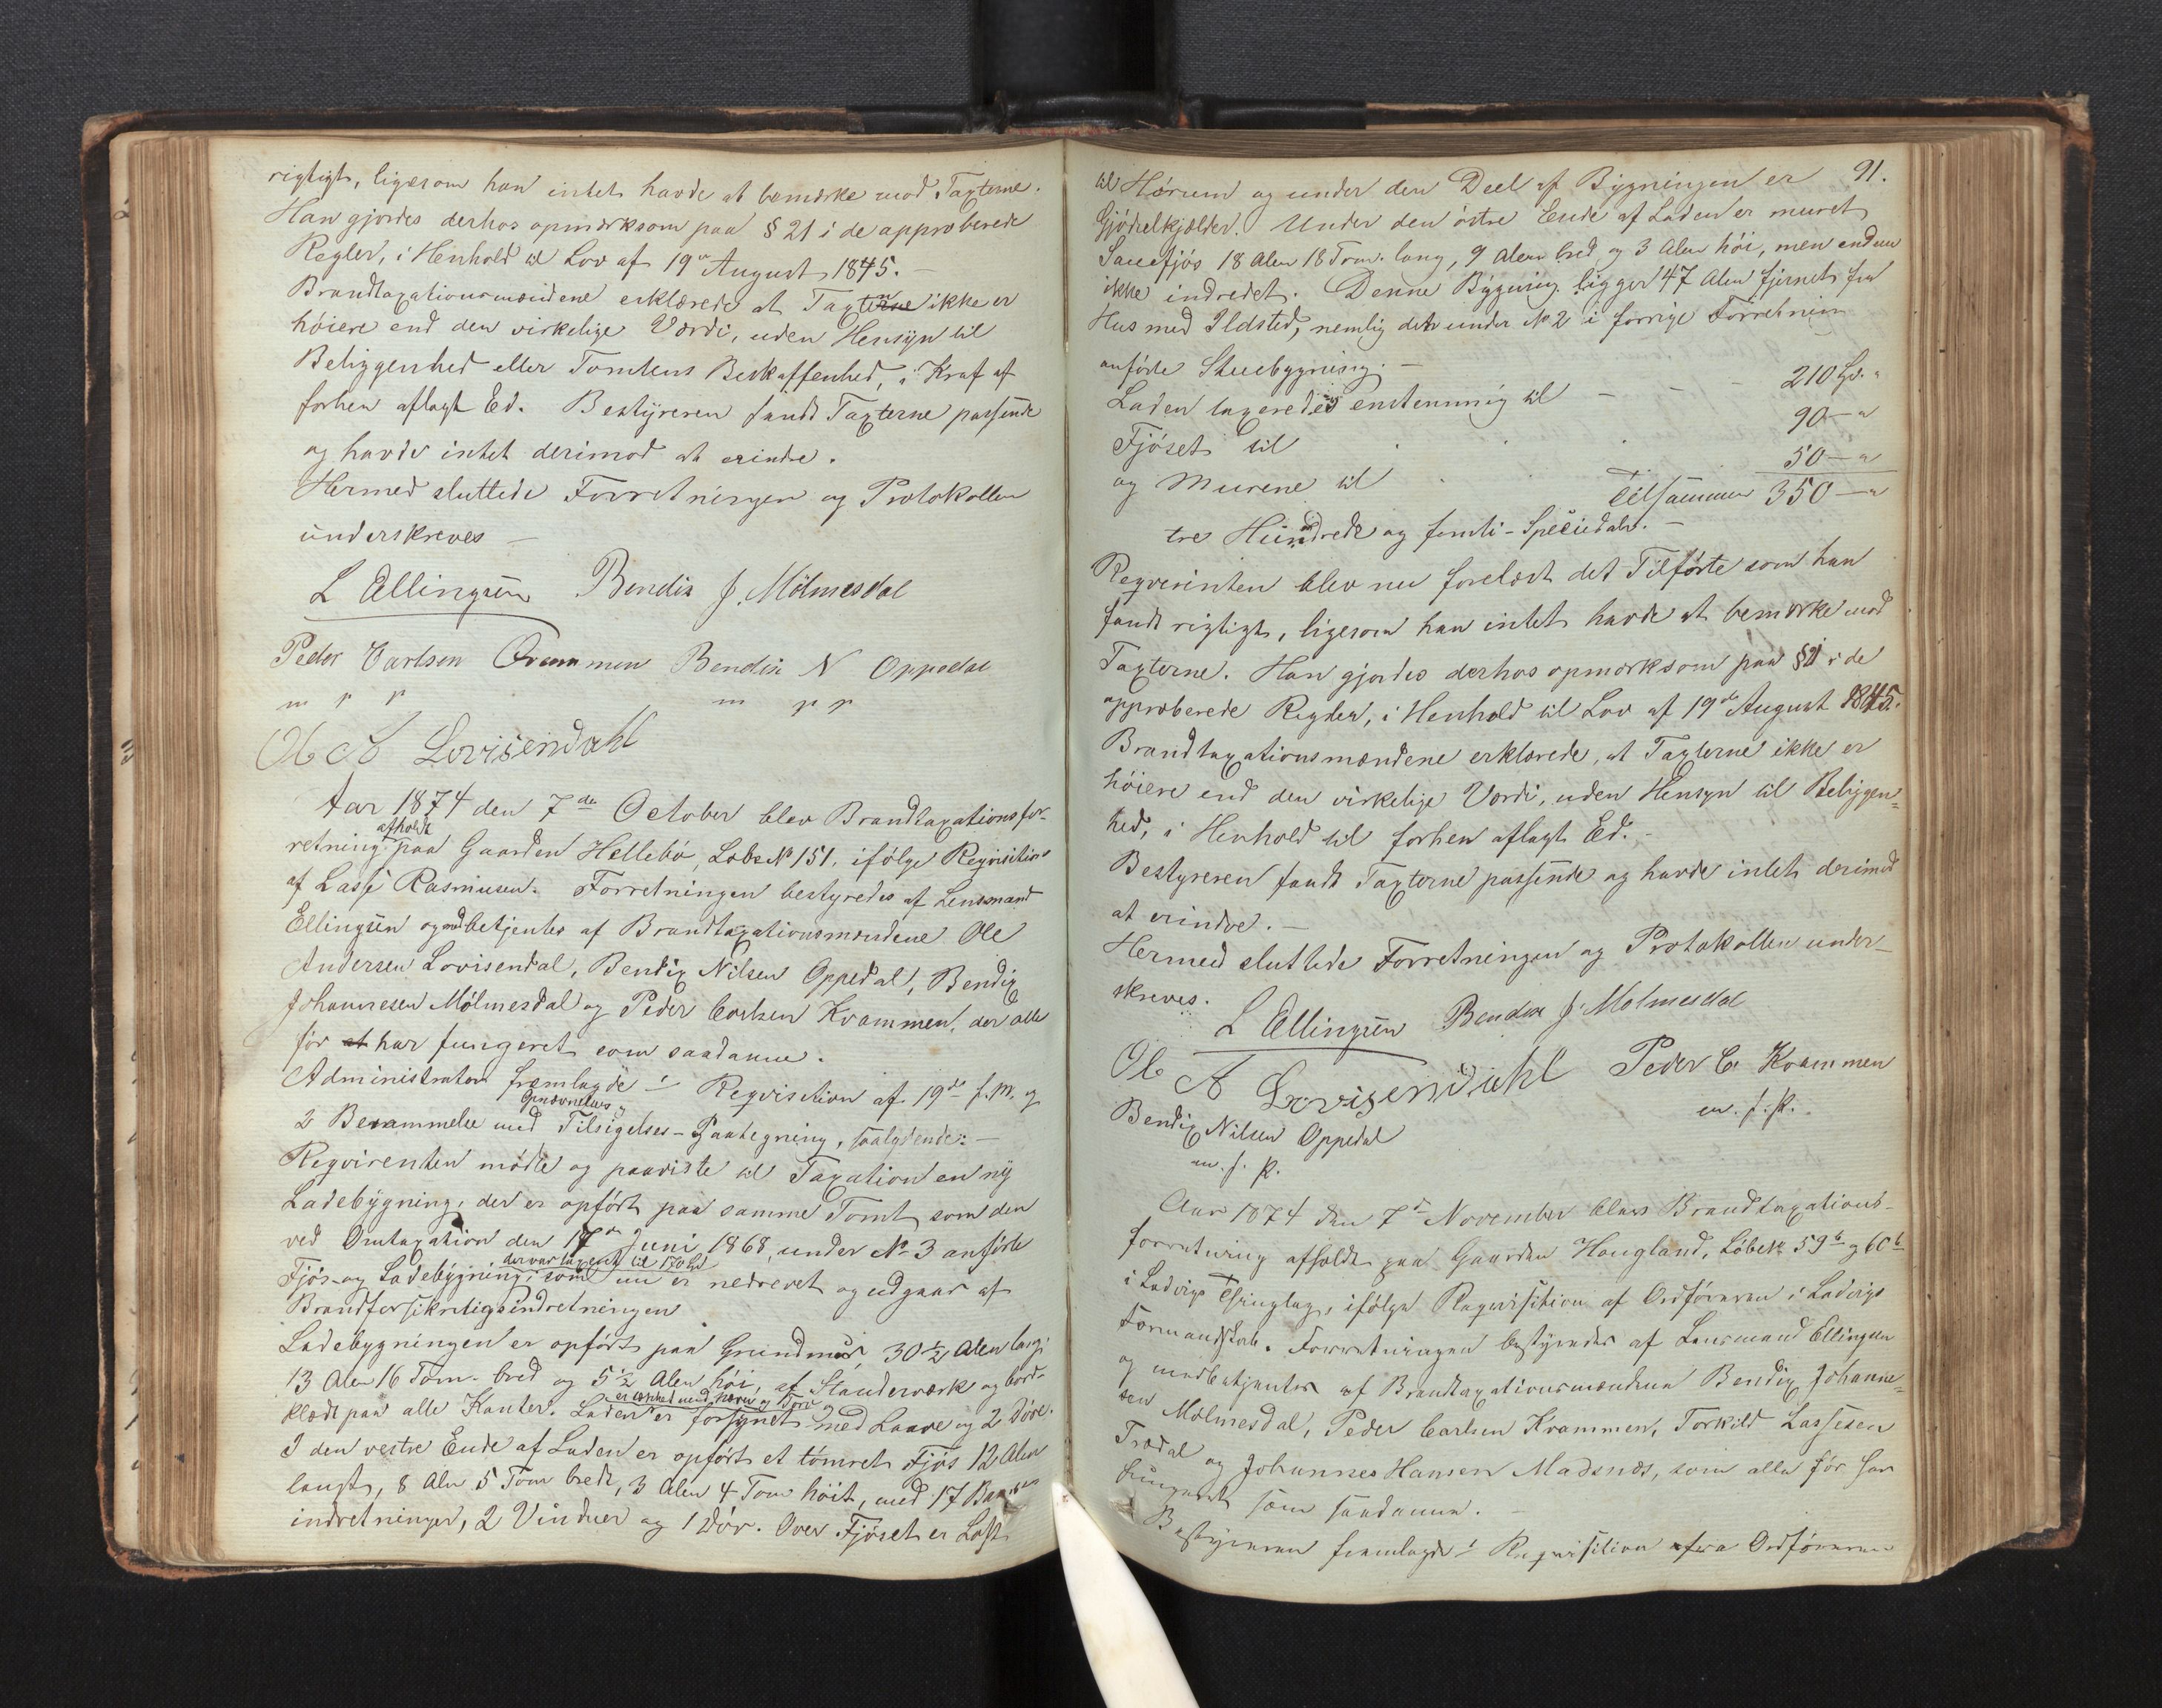 rigtigt, ligesom han intet havde at bemærke mod Taxterne.
Han gjordes derhos opmærksom paa § 21 i de approberede
Regler, i Henhold til Lov af 19de August 1845. —
Brandtaxationsmændene erklærede at Taxterne ikke er
høiere end den virkelige Værdi, uden Hensyn til
Beliggenhed eller Tomtens Beskaffenhed, i Kraf af
forhen aflagt Ed. Bestyreren fandt Taxterne passende
og havde intet derimod at erindre.
Hermed sluttede Forretningen og Protokollen
underskreves —
L Ellingsen Bendix J. Mølmesdal
Peder Carlsen Qvammen Bendix N Oppedal
m p p m p p
Ole A Lovisendahl
Aar 1874 den 7de October blev Brandtaxationsfor-
retning afholdt paa Gaarden Hellebø, Løbe No 151, ifølge Reqvisition
af Lasse Rasmusen. Forretningen bestyredes af Lensmand
Ellingsen og medbetjentes af Brandtaxationsmændene Ole
Andersen Lovisendal, Bendix Nilsen Oppedal, Bendix
Johannesen Mølmesdal og Peder Carlsen Kvammen, der alle
før at har fungeret som saadanne.
Administrator fremlagde 1 Reqvisition af 19de f. M. og
2 Opnævnelses Berammelse med Tilsigelses-Paategning, saalydende: —
Reqvirenten mødte og paaviste til Taxation en ny
Ladebygning, der er opført paa samme Tomt som den
ved Omtaxation den 17de Juni 1868, under No 3 anførte
Fjøs- og Ladebygning, der var taxeret til 170 Spd som nu er nedrevet og udgaar af
Brandforsikringsindretningen
Ladebygningen er opført paa Grundmur, 30 ½ Alen lang,
13 Alen 16 Tom. bred og 5 ½ Alen høi, af Standerværk og bord-
klædt paa alle Kanter. er tækket med Næver og Torv Laden er forsynet med Laave og 2 Døre.
I den vestre Ende af Laden er opført et tømret Fjøs 12 Alen
langt, 8 Alen 5 Tom bredt, 3 Alen 4 Tom høit, med 17 Baase
indretninger, 2 Vinduer og 1 Dør. Over Fjøset er Loft
91.
til Hørum og under den Deel af Bygningen er
Gjødselkjælder. Under den østre Ende af Laden er muret
Sauefjøs 18 Alen 18 Tom. lang, 9 Alen bred og 3 Alen høi, men endnu
ikke indredet. Denne Bygning ligger 47 Alen fjernet fra
Hus med Ildsted, nemlig det under No 2 i forrige Forretnin
anførte Stuebygning. —
Laden taxeredes enstemmig til — 210 Spd. "
Fjøset til 90 — "
og Murene til 50 — "
Tilsammen 350 — "
tre Hundrede og femti - Speciedaler. —
Reqvirinten blev nu forelæst det Tilførte som han
fandt rigtigt, ligesom han intet havde at bemærke mod
Taxterne. Han gjordes derhos opmærksom paa § 21 i de
approberede Regler, i Henhold til Lov af 19de August 1845.
Brandtaxationsmændene erklærede, at Taxterne ikke er
høiere end den virkelige Værdi, uden Hensyn til Beliggen-
hed, i Henhold til forhen aflagt Ed. -
Bestyreren fandt Taxterne passende og havde intet derimod
at erindre. —
Hermed sluttede Forretningen og Protokollen under-
skreves.
L Ellingsen Bendix J. Mølmesdal
Ole A Lovisendahl Peder C. Kvammen
m. f. P.
Bendix Nilsen Oppedal
m. f. P.
Aar 1874 den 7de November blev Brandtaxations-
forretning afholdt paa Gaarden Haugland, Løbe No 59b og 60b
i Ladvigs Thinglag, ifølge Reqvisition af Ordføreren i Ladvigs
Formandskab. Forretningen bestyredes af Lensmand Ellingsen
og medbetjentes af Brandtaxationsmændene Bendix Johanne-
sen Mølmesdal, Peder Carlsen Kvammen, Torkild Lassesen
Trædal og Johannes Hansen Madsnæs, som alle før har
fungeret som saadanne. —
Bestyreren fremlagde 1 Reqvisition fra Ordføreren